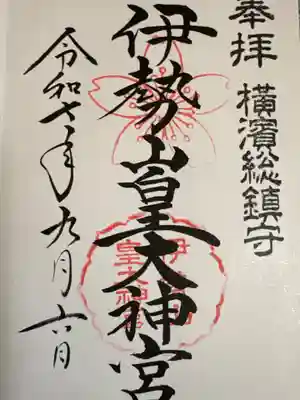 奉拝 横濱総鎮守
伊勢山皇大神宮
令和七年九月六日
伊勢山
皇大神宮